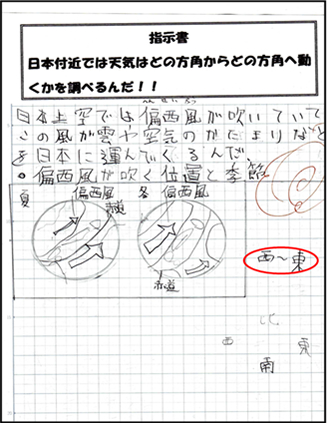 指示書
日本付近では天気はどの方角からどの方角へ動
くかを調べるんだ！！
日本上空では偏西風が吹いていて
この風が雲や空気のかたまりなど
を日本に運んでくるんだ。
偏西風が吹く位置と季節
夏 偏西風
冬 偏西風
赤道
西〜東
北
西 東
南